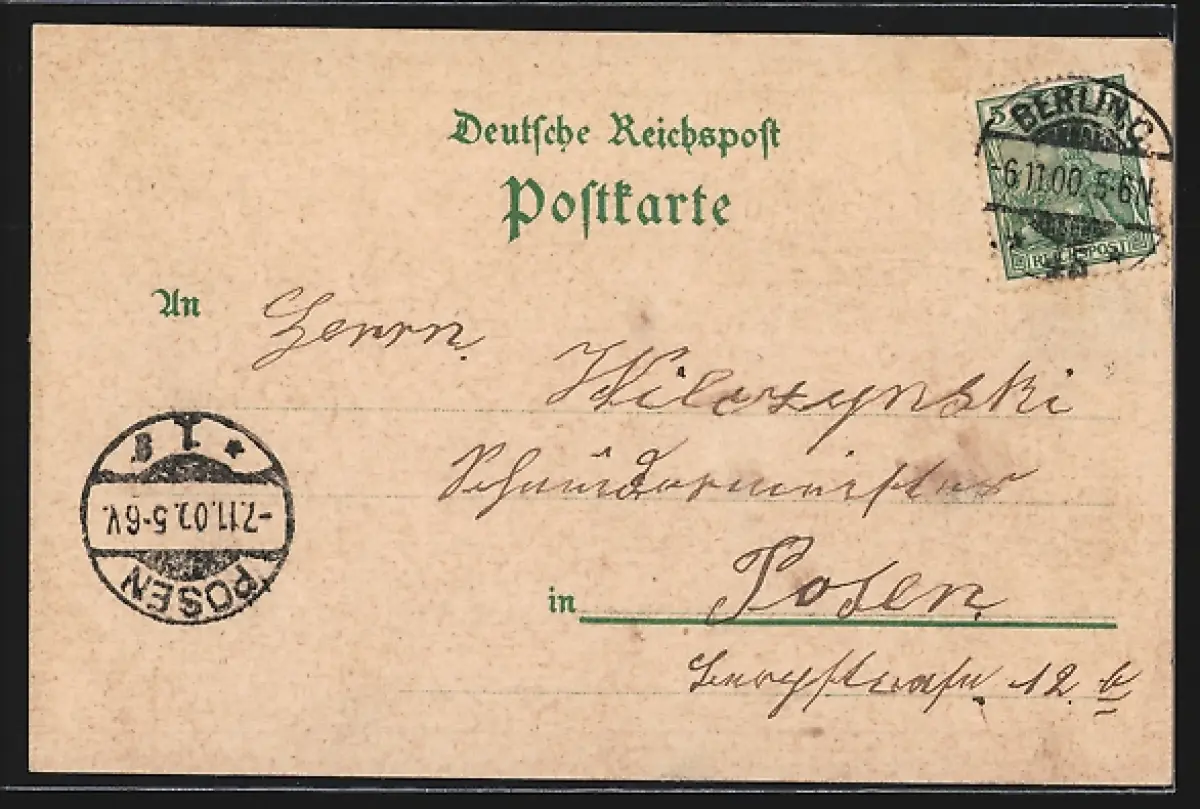 Deutsche Reichspost
Postkarte
5
REICHSPOST
BERLIN, C.
-6.11.00. 5-6N
An Herrn
Wilczynski
Schneidermeister
in Posen
12. b
POSEN
-7.11.00. 5-6V.